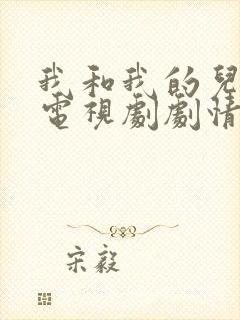 我和我的兒
電視劇劇情
宋毅